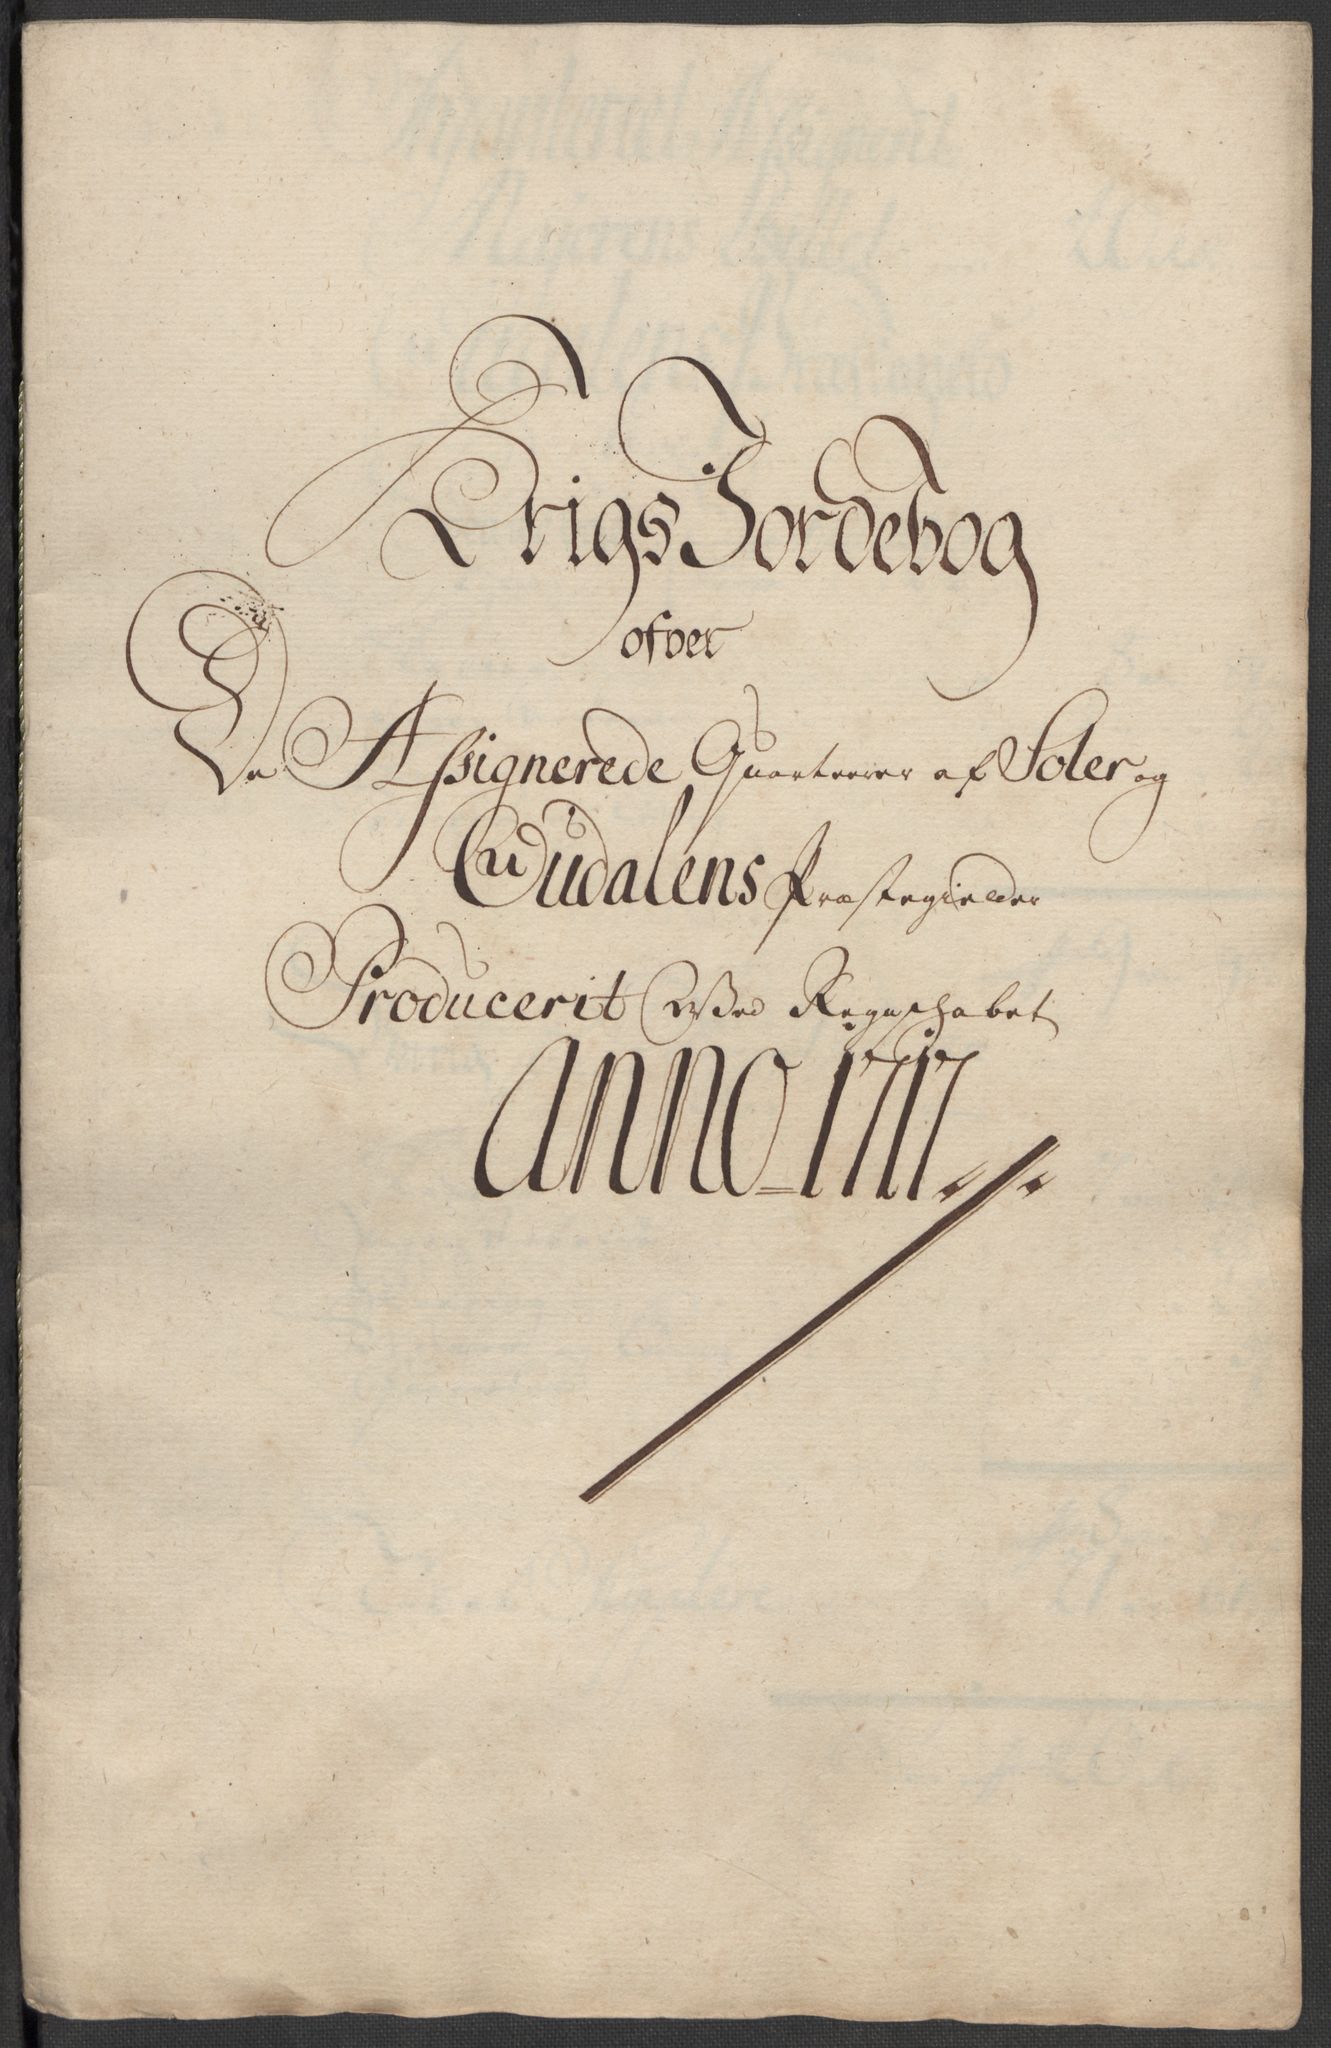 Krigs Jordebog
ofver
De Assignerede Quarteerer af Soler og
Oudalens Præstegielder
Producerit Ved Regnschabet
Anno 1717